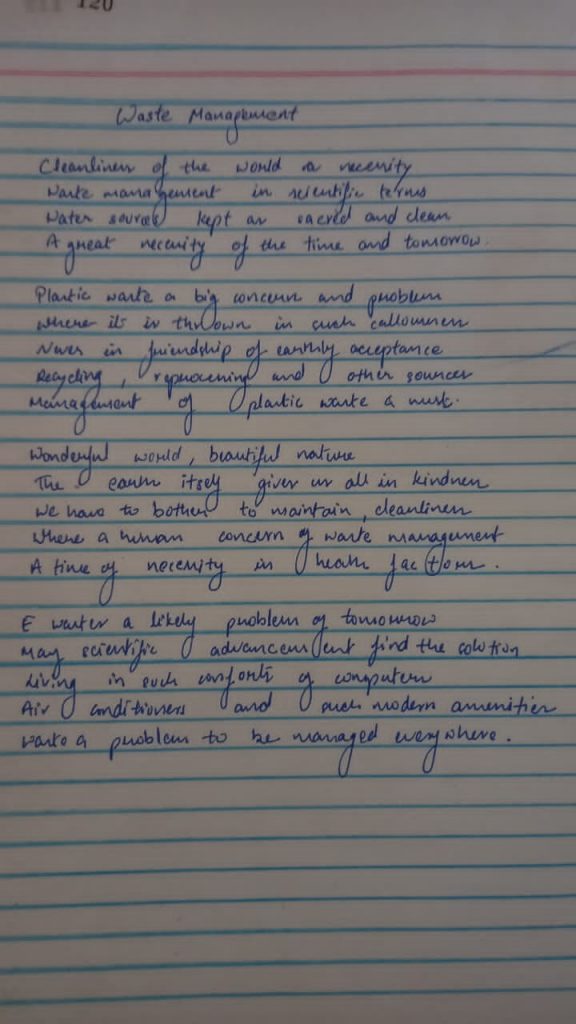 120
Waste Management
Cleanliness of the world a necessity
Waste management in scientific terms
Water sources kept as sacred and clean
A great necessity of the time and tomorrow.
Plastic waste a big concern and problem
Where its is thrown in such callousness
Never in friendship of earthly acceptance
Recycling, reprocessing and other sources
Management of plastic waste a must.
Wonderful world, beautiful nature
The earth itself gives us all in kindness
We have to bother to maintain cleanliness
Where a human concern of waste management
A time of necessity in health factors.
E wastes a likely problem of tomorrow
May scientific advancement find the solution
Living in such comforts of computers
Air conditioners and such modern amenities
Waste a problem to be managed everywhere.